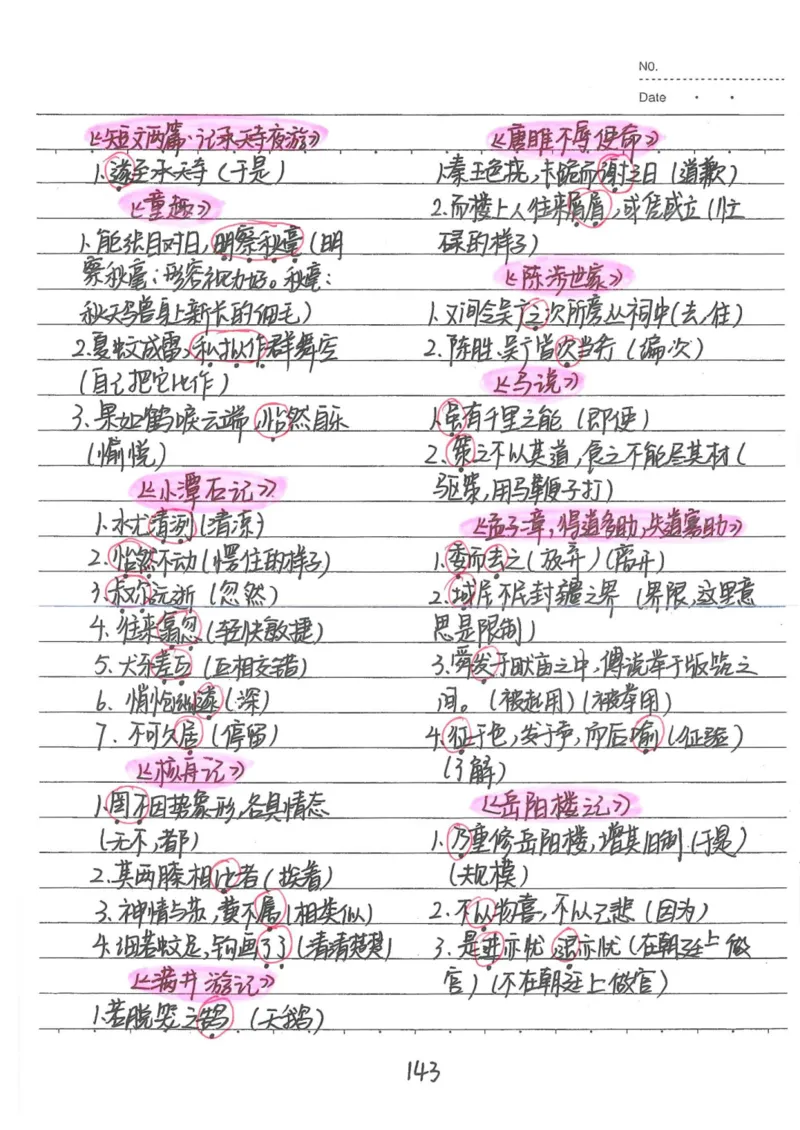 NO.
Date
《短文两篇·记承天寺夜游》
1.遂至承天寺（于是）
《童趣》
1.能张目对日，明察秋毫（明
察秋毫：形容视力好。秋毫：
秋天鸟兽身上新长的细毛）
2.夏蚊成雷，私拟作群舞空
（自己把它比作）
3.果如鹤唳云端，怡然自乐
（愉悦）
《小潭石记》
1.水尤清冽（清凉）
2.怡然不动（愣住的样子）
3.俶尔远逝（忽然）
4.往来翕忽（轻快敏捷）
5.犬牙差互（互相交错）
6.悄怆幽邃（深）
7.不可久居（停留）
《核舟记》
1.罔不因势象形，各具情态
（无不，都）
2.其两膝相比者（挨着）
3.神情与苏、黄不属（相类似）
4.细若蚊足，钩画了了（清清楚楚）
《满井游记》
1.若脱笼之鹄（天鹅）
《唐雎不辱使命》
1.秦王色挠，长跪而谢之曰（道歉）
2.而楼上人往来屑屑，或凭或立（忙
碌的样子）
《陈涉世家》
1.又间令吴广之次所旁丛祠中（去，往）
2.陈胜、吴广皆次当行（编次）
《马说》
1.虽有千里之能（即使）
2.策之不以其道，食之不能尽其材（
驱策，用马鞭子打）
《孟子二章，得道多助，失道寡助》
1.委而去之（放弃）（离开）
2.域民不以封疆之界（界限，这里意
思是限制）
3.舜发于畎亩之中，傅说举于版筑之
间。（被起用）（被举用）
4.征于色，发于声，而后喻（征验）
（了解）
《岳阳楼记》
1.乃重修岳阳楼，增其旧制（于是）
（规模）
2.不以物喜，不以己悲（因为）
3.是进亦忧 退亦忧（在朝廷上做
官）（不在朝廷上做官）
143